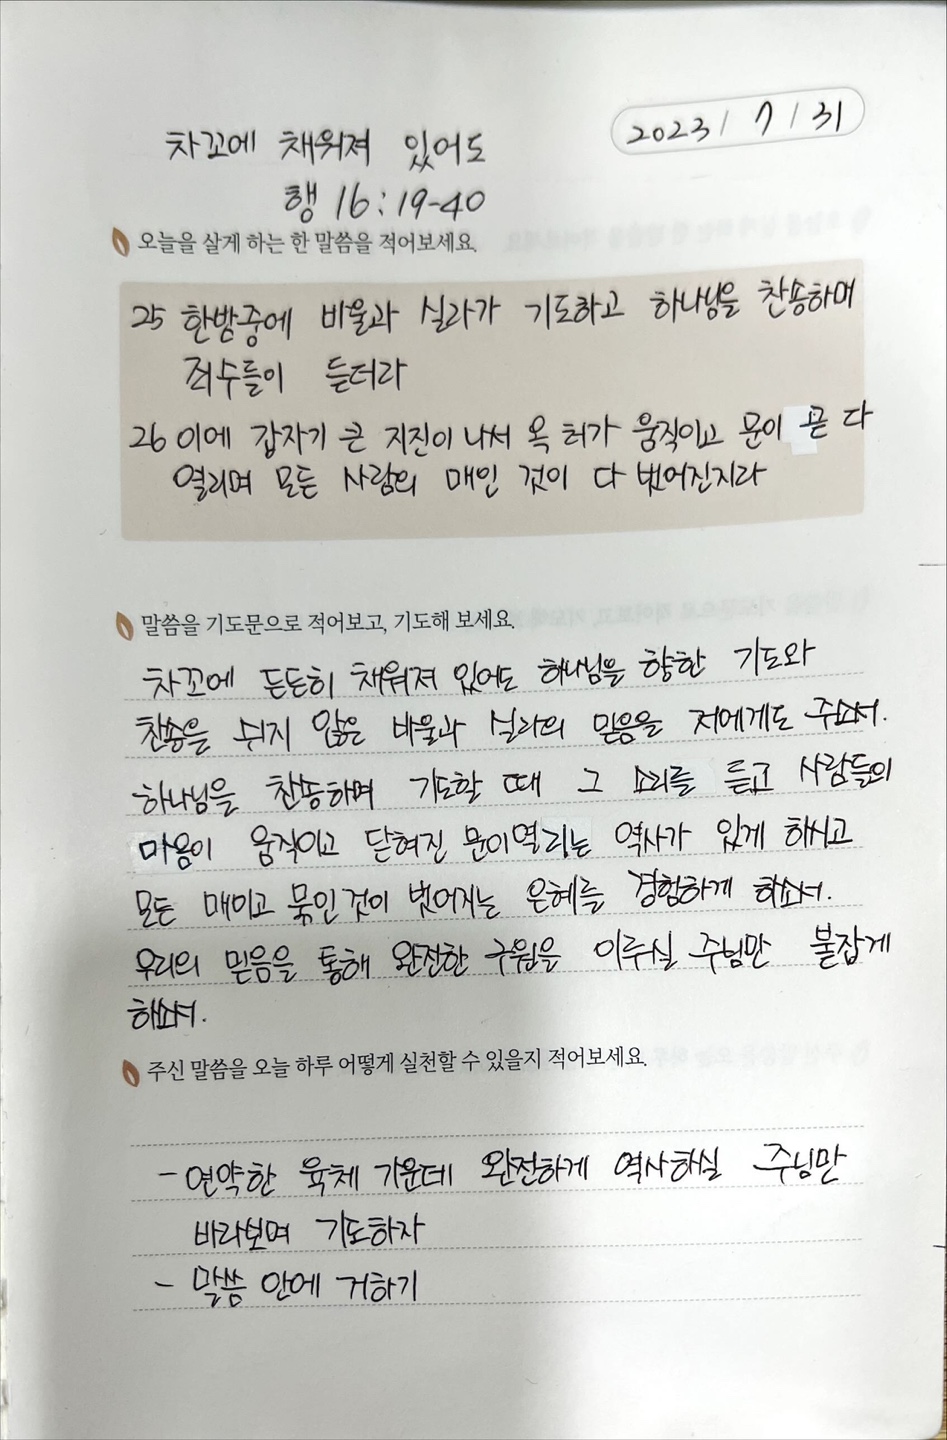 2023 / 7 / 31
차꼬에 채워져 있어도
행 16:19-40
오늘을 살게 하는 한 말씀을 적어보세요.
25 한밤중에 바울과 실라가 기도하고 하나님을 찬송하매
죄수들이 듣더라
26 이에 갑자기 큰 지진이 나서 옥 허가 움직이고 문이 곧 다
열리며 모든 사람의 매인 것이 다 벗어진지라
말씀을 기도문으로 적어보고, 기도해 보세요.
차꼬에 든든히 채워져 있어도 하나님을 향한 기도와
찬송을 쉬지 않은 바울과 실라의 믿음을 저에게도 주소서.
하나님을 찬송하며 기도할 때 그 소리를 듣고 사람들의
마음이 움직이고 닫혀진 문이 열리는 역사가 있게 하시고
모든 매이고 묶인 것이 벗어지는 은혜를 경험하게 하소서.
우리의 믿음을 통해 완전한 구원을 이루실 주님만 붙잡게
하소서.
주신 말씀을 오늘 하루 어떻게 실천할 수 있을지 적어보세요.
- 연약한 육체 가운데 완전하게 역사하실 주님만
바라보며 기도하자
- 말씀 안에 거하기